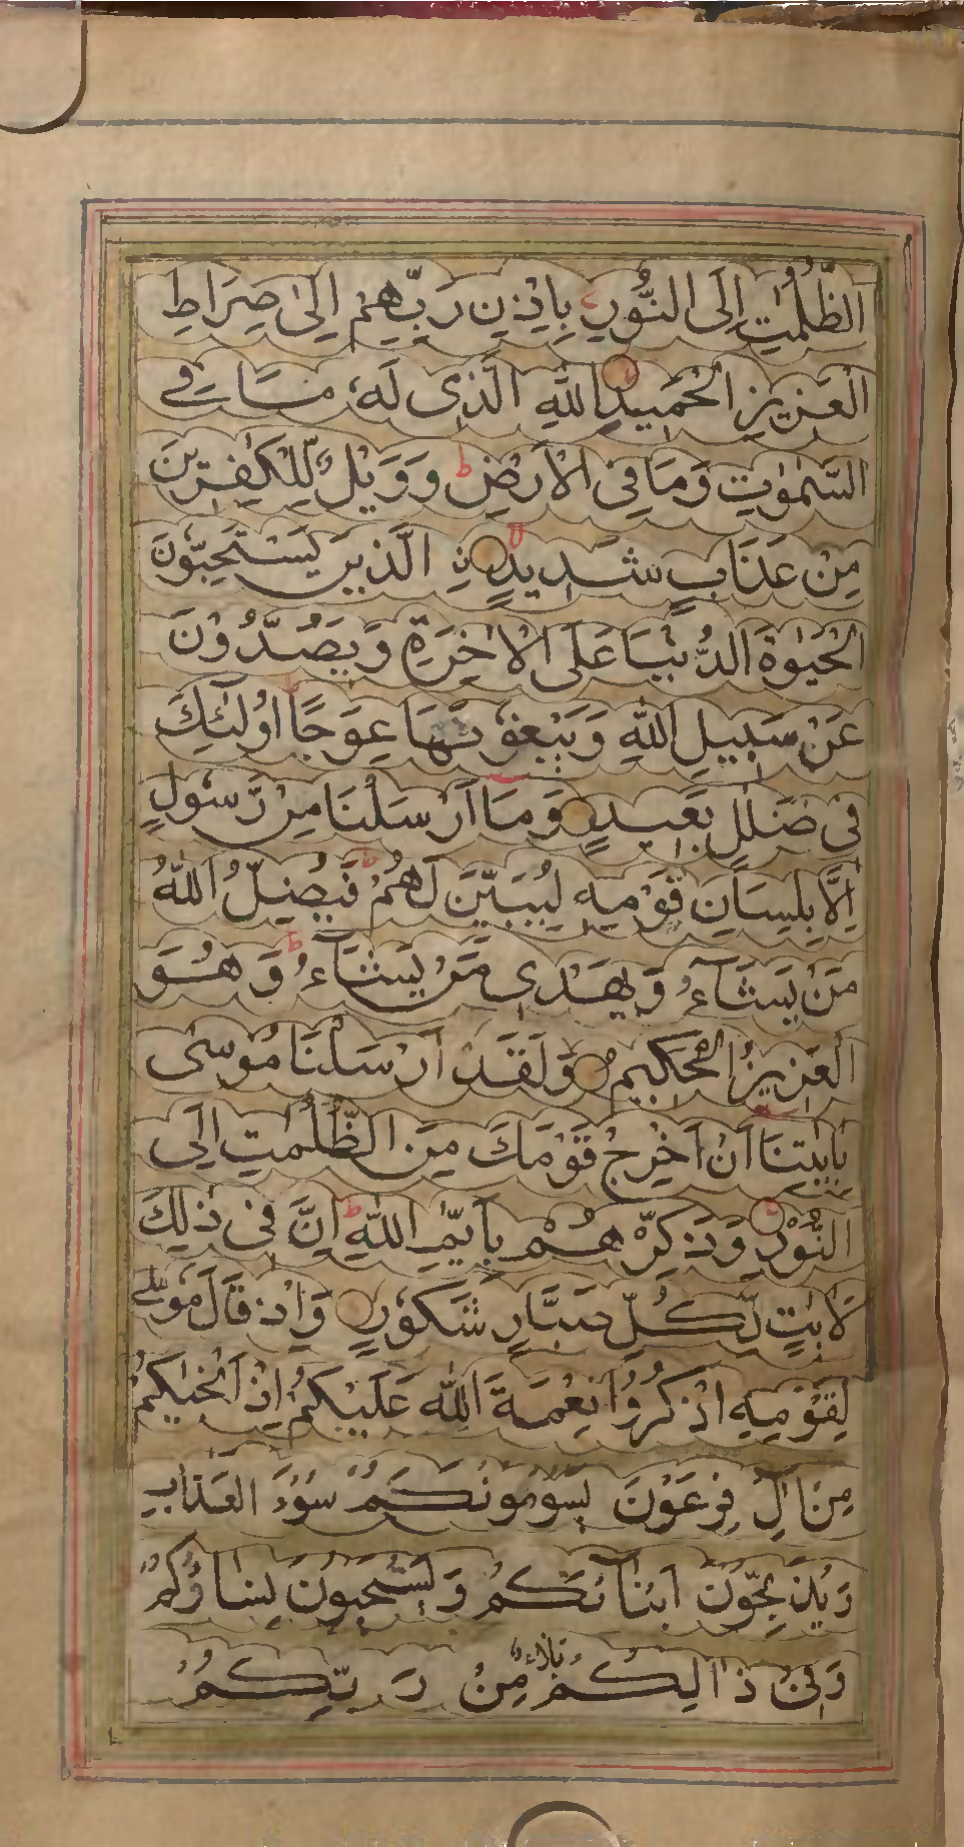 الظُّلُمٰتِ اِلَى النُّوْرِ بِاِذْنِ رَبِّهِمْ اِلٰى صِرَاطِ
الْعَزِيْزِ الْحَمِيْدِ اللّٰهِ الَّذِى لَهٗ مَا فِى
السَّمٰوٰتِ وَمَا فِى الْاَرْضِ ط وَوَيْلٌ لِّلْكٰفِرِيْنَ
مِنْ عَذَابٍ شَدِيْدٍ لا نِ الَّذِيْنَ يَسْتَحِبُّوْنَ
الْحَيٰوةَ الدُّنْيَا عَلَى الْاٰخِرَةِ وَيَصُدُّوْنَ
عَنْ سَبِيْلِ اللّٰهِ وَيَبْغُوْنَهَا عِوَجًا ط اُولٰئِكَ
فِى ضَلٰلٍ بَعِيْدٍ وَمَا اَرْسَلْنَا مِنْ رَّسُوْلٍ
اِلَّا بِلِسَانِ قَوْمِهٖ لِيُبَيِّنَ لَهُمْ ط فَيُضِلُّ اللّٰهُ
مَنْ يَّشَآءُ وَيَهْدِى مَنْ يَّشَآءُ ط وَهُوَ
الْعَزِيْزُ الْحَكِيْمُ وَلَقَدْ اَرْسَلْنَا مُوْسٰى
بِاٰيٰتِنَا اَنْ اَخْرِجْ قَوْمَكَ مِنَ الظُّلُمٰتِ اِلَى
النُّوْرِ وَذَكِّرْهُمْ بِاَيّٰمِ اللّٰهِ ط اِنَّ فِى ذٰلِكَ
لَاٰيٰتٍ لِّكُلِّ صَبَّارٍ شَكُوْرٍ وَاِذْ قَالَ مُوْسٰى
لِقَوْمِهِ اذْكُرُوْا نِعْمَةَ اللّٰهِ عَلَيْكُمْ اِذْ اَنْجٰيكُمْ
مِنْ اٰلِ فِرْعَوْنَ يَسُوْمُوْنَكُمْ سُوْءَ الْعَذَابِ
وَيُذَبِّحُوْنَ اَبْنَائَكُمْ وَيَسْتَحْيُوْنَ نِسَاؤُكُمْ
وَفِىْ ذَالِكُمْ بَلَاءٌ مِّنْ رَبِّكُمْ